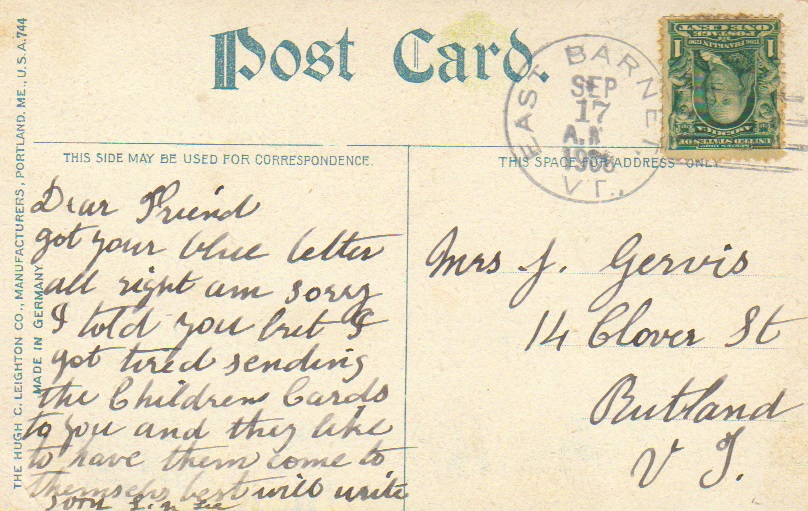 Post Card.
THIS SIDE MAY BE USED FOR CORRESPONDENCE.
THIS SPACE FOR ADDRESS ONLY
THE HUGH C. LEIGHTON CO., MANUFACTURERS, PORTLAND, ME., U.S.A. 744
MADE IN GERMANY
EAST BARNET
SEP
17
VT.
POSTAGE
ONE CENT
1 1
FRANKLIN
AMERICA
UNITED STATES OF
Dear Friend
got your blue letter
all right am sorry
I told you but I
got tired sending
the Childrens Cards
to you and they like
to have them come to
themselves best will write
soon
Mrs J. Gervis
14 Clover St
Rutland
V T.